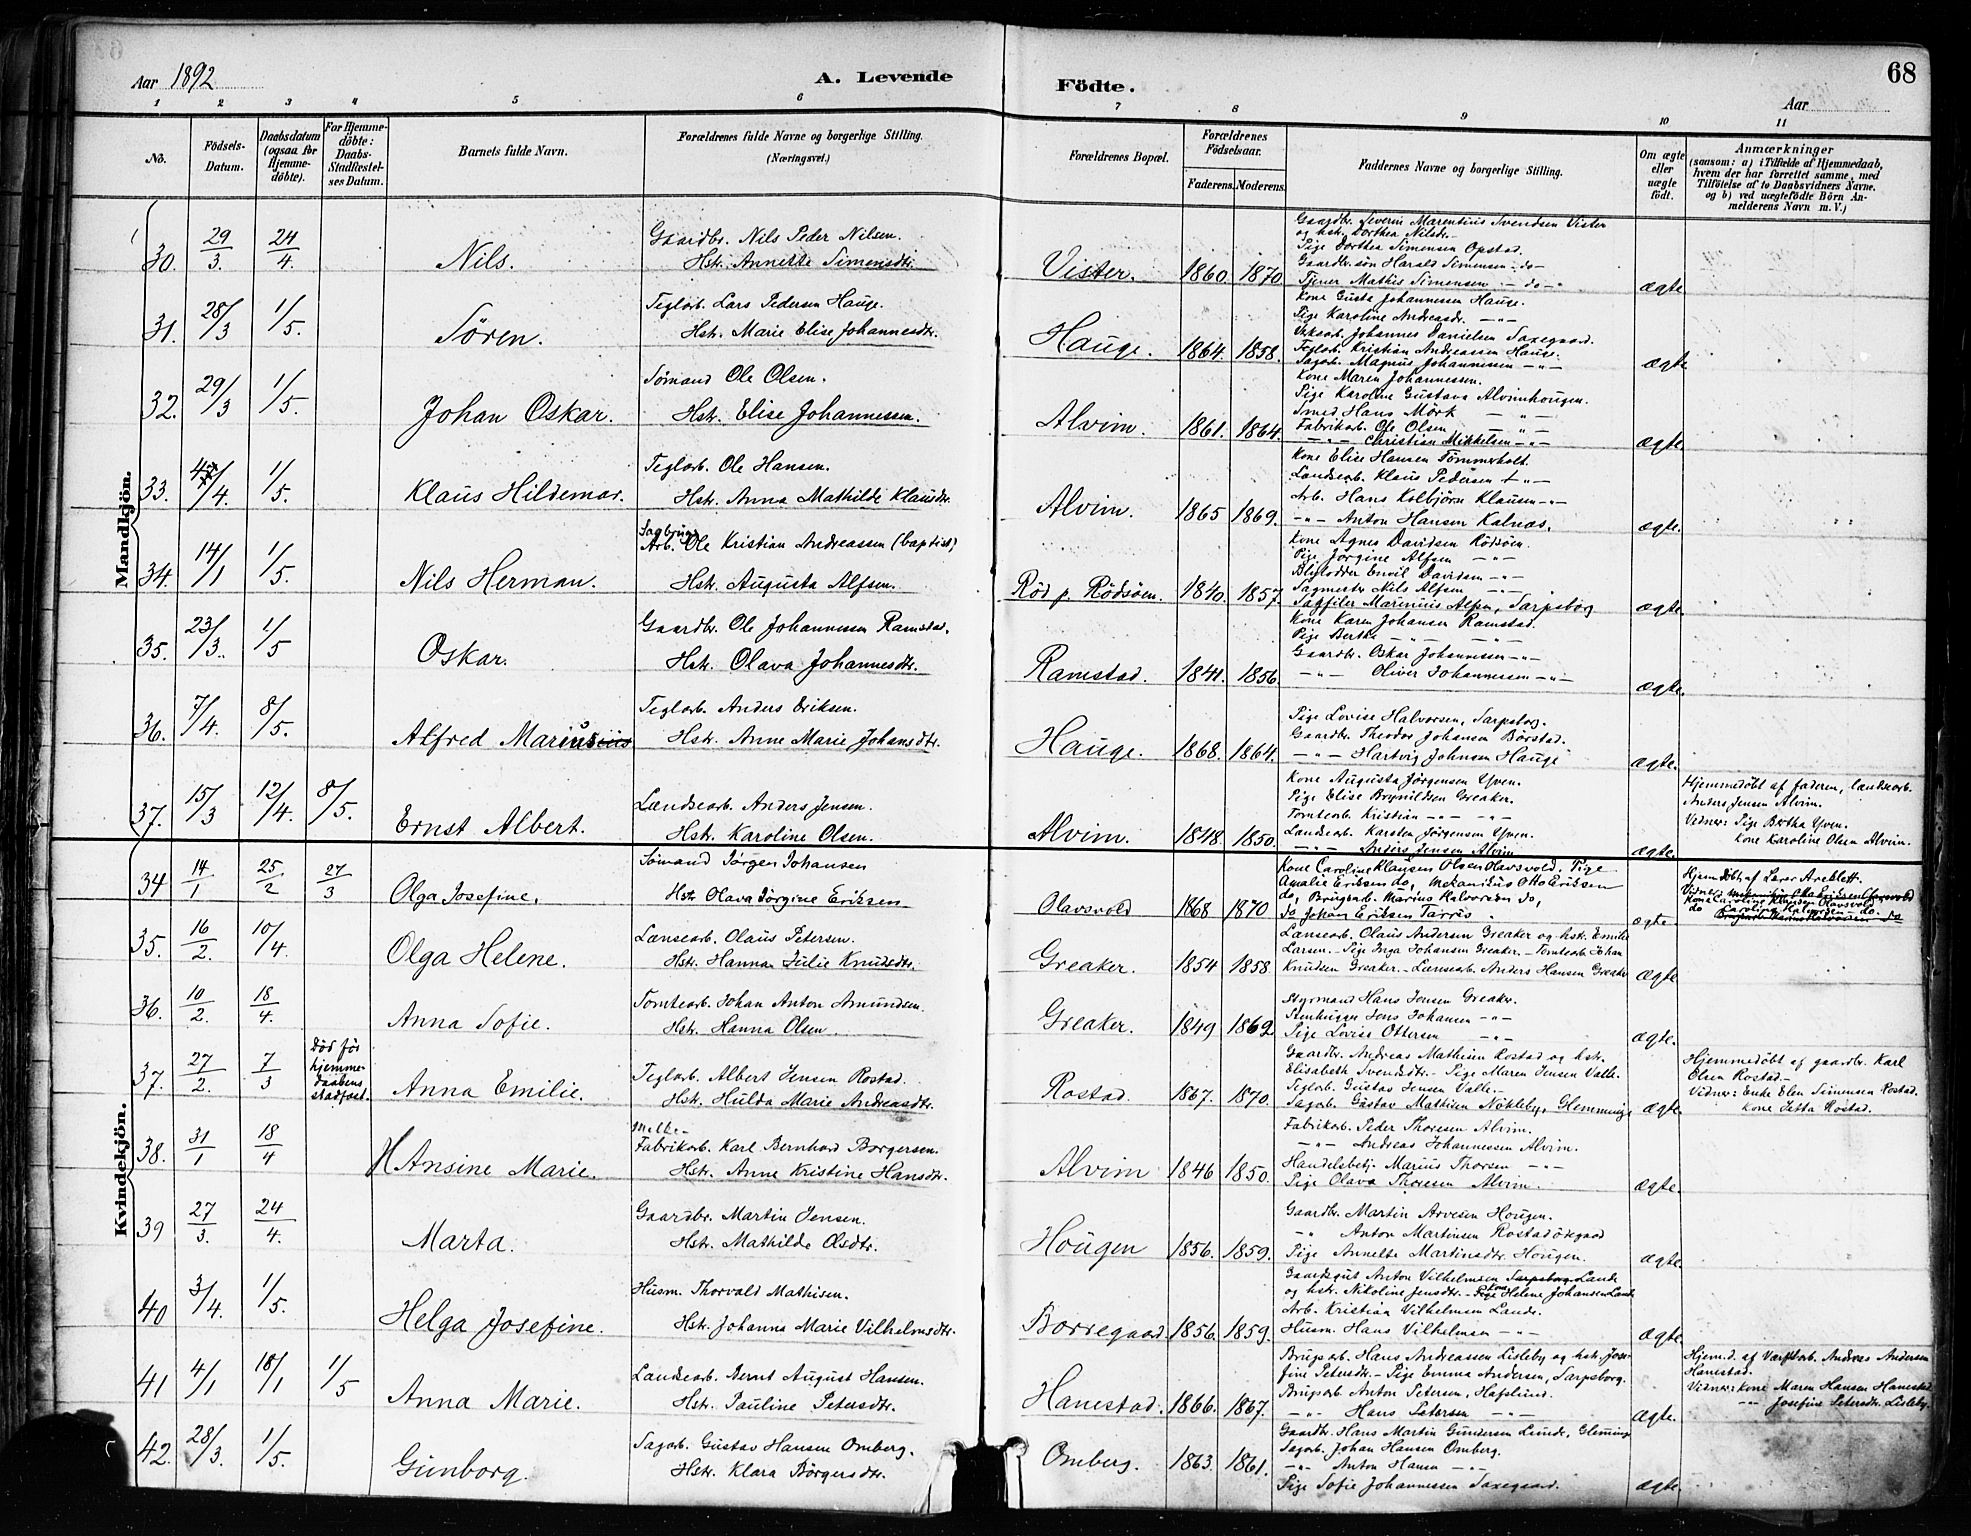 Aar 1892
A. Levende Födte.
68
Aar
1 2 3 4 5 6 7 8 9 10 11
No.
Födsels-Datum.
Daabsdatum (ogsaa for Hjemme-döbte).
For Hjemme-döbte: Daabs-Stadfæstel-ses Datum.
Barnets fulde Navn.
Forældrenes fulde Navne og borgerlige Stilling. (Næringsvei.)
Forældrenes Bopæl.
Forældrenes Födselsaar.
Faderens. Moderens.
Faddernes Navne og borgerlige Stilling.
Om ægte eller uægte födt.
Anmærkninger
(saasom: a) i Tilfælde af Hjemmedaab, hvem der har forrettet samme, med Tilföielse af to Daabsvidners Navne. og b) ved uægtefödte Börn An-melderens Navn m. V.)
Mandkjön.
30. 29/3. 24/4. Nils. Gaardbr. Nils Peder Nilsen. Hstr. Annette Simensdtr. Vister. 1860. 1870
Gaardbr. Severin Marentius Svendsen Vister
og hstr. Dorthea Nilsdr.
Pige Dorthea Simensen Opstad.
Gaardbr. søn Harald Simensen - do -
Tjener Mathis Simensen - do -
ægte
31. 28/3 1/5. Sören. Teglarb. Lars Pedersen Hauge. Hstr. Marie Elise Johannesdtr. Hauge. 1864. 1858.
Kone Gusta Johannessen Hauge.
Pige Karoline Andreasdr. - " -
Johannes Danielsen Saxegaard.
Teglarb. Kristian Andreassen Hauge.
Sagarb. Magnus Johannessen - " -
ægte
32. 29/3 1/5. Johan Oskar. Sømand Ole Olsen. Hstr. Elise Johannessen. Alvim. 1861. 1864.
Kone Maren Johannessen.
Pige Karoline Gustava Alvimhougen.
Smed Hans Mörk - " -
Fabrikarb. Ole Olsen - " -
- " - Christian Mikkelsen - " -
ægte.
33. 4/4 1/5. Klaus Hildemar. Teglarb. Ole Hansen. Hstr. Anna Mathilde Klausdtr. Alvim. 1865 1869.
Kone Elise Hansen Tömmerholt.
Landsearb. Klaus Pedersen - " -
Arb. Hans Kolbjörn Klausen - " -
- " - Anton Hansen Kalnæs.
ægte.
34. 14/1 1/5. Nils Herman. Sagbrugs Arb. Ole Kristian Andreassen (baptist) Hstr. Augusta Alfsen. Röd p. Rödsöen. 1840. 1857.
Kone Agnes Davidsen Rödsöen.
Pige Jörgine Alfsen - " -
Davidsen - " -
Sagmester Nils Alfsen - " -
Sagfiler Marinius Alfsen, Sarpsborg
ægte.
35. 23/3. 1/5 Oskar. Gaardbr. Ole Johannessen Ramstad. Hstr. Olava Johannesdtr. Ramstad. 1841. 1856.
Kone Karen Johansen Ramstad.
Pige Bertha - " - - " -
Gaardbr. Oskar Johannessen - " -
- " - Oliver Johannessen - " -
ægte.
36. 7/4. 8/5. Alfred Marius Teglarb. Anders Eriksen. Hstr. Anne Marie Johansdtr. Hauge. 1868. 1864.
Pige Lovise Halvorsen, Sarpsborg.
Gaardbr. Theodor Johansen Börstad.
- " - Hartvig Johnsen Hauge
ægte.
37. 15/3 12/4. 8/5. Ernst Albert. Landsearb. Anders Jensen. Hstr. Karoline Olsen. Alvim. 1848. 1850.
Kone Augusta Jörgensen Yven.
Pige Elise Brynildsen Greaker.
Tomtearb. Kristian - " - - " -
Landsearb. Karsten Jörgensen Yven.
- " - Anders Jensen Alvim
ægte.
Hjemmedöbt af faderen, landsearb.
Anders Jensen Alvim.
Vidner: Pige Bertha Yven.
Kone Karoline Olsen Alvim.
Kvindekjön.
34 14/1 25/2 27/3 Olga Josefine. Sømand Jörgen Johansen Hstr Olava Jörgine Eriksen Olavsvold 1868 1870
Kone Caroline Klausen Olsen Olavsvold, Pige
Amalie Eriksen do, Mekanikus Otto Eriksen
do, Brugsarb. Marius Halvorsen do,
do Johan Eriksen Tarris.
ægte.
Hjemdöbt af Lærer Areklett.
Vidner:
Kone Caroline Klausen Olavsvold
do Karoline Halvorsen do.
35. 16/2. 10/4. Olga Helene. Lænsearb. Olaus Petersen. Hstr. Hanna Julie Knudsdtr. Greaker. 1854 1858.
Lænsearb. Olaus Andersen Greaker og hstr. Emilie
Larsen. - Pige Inga Johansen Greaker. - Tomtearb. Johan
Knudsen Greaker. - Lænsearb. Anders Hansen Greaker
ægte
36. 10/2. 18/4. Anna Sofie. Tomtearb. Johan Anton Amundsen. Hstr. Hanna Olsen. Greaker. 1849 1862
Styrmand Hans Jensen Greaker.
Stenhugger Jens Johansen - " -
Pige Lovise Ottersen - " -
ægte.
37. 27/2. 7/3 Död før hjemme-daabens stadfæst. Anna Emilie. Teglarb. Albert Jensen Rostad. Hstr. Hulda Marie Andreasdtr. Rostad. 1867. 1870.
Gaardbr. Andreas Mathisen Rostad og hstr.
Elisabeth Svendsdtr. - Pige Maren Jensen Valle.
Teglarb. Gustav Jensen Valle. -
Sagarb. Gustav Mathisen Nökleby, Glemminge
ægte.
Hjemmedöbt af gaardbr. Karl
Olsen Rostad. -
Vidner: Enke Elen Simensen Rostad.
Kone Jetta Rostad.
38. 31/1 18/4 Hansine Marie. Fabrikarb. Karl Bernhard Borgersen. Hstr. Anne Kristine Hansdtr. Alvim 1846 1850.
Fabrikarb. Peder Thoresen Alvim.
- " - Andreas Johannessen Alvim.
Handelsbetj. Marius Thorsen - " -
Pige Olava Thoresen Alvim.
ægte.
39 27/3. 24/4. Marta. Gaardbr. Martin Jensen. Hstr. Mathilde Olsdtr. Hougen 1856. 1859.
Gaardbr. Martin Arvesen Hougen.
- " - Anton Martinsen Rostadödegaard
Pige Annette Martinsdtr. Hougen.
ægte.
40 3/4. 1/5. Helga Josefine. Husm. Thorvald Mathisen. Hstr. Johanna Marie Vilhelmsdtr. Borregaard 1856. 1859.
Gaardsgut Anton Vilhelmsen Lande
og hstr. Nikoline Jensdtr. - Helene Johansen Lande
Arb. Kristian Vilhelmsen Lande.
Husm. Hans Vilhelmsen - " -
ægte.
41 4/1 18/1 1/5 Anna Marie. Landsearb. Bernt August Hansen. Hstr. Pauline Petersdtr. Hanestad. 1866. 1867.
Brugsarb. Hans Andreassen Lisleby og hstr. Jose-
fine Petersdtr. - Pige Emma Andersen, Sarpsborg.
Brugsarb Anton Petersen, Hafslund.
- " - Hans Petersen - " -
ægte.
Hjem.d. af Værftsarb. Andreas Andersen
Hanestad.
Vidner: Kone Maren Hansen Hanestad
- " - Josefine Petersdtr. Lisleby.
42. 28/3. 1/5. Gunborg. Sagarb. Gustav Hansen Omberg. Hstr. Klara Börgersdtr. Omberg. 1863. 1861.
Gaardbr. Hans Martin Gundersen Lunde, Glemminge
Sagarb. Johan Hansen Omberg.
- " - Anton Hansen - " -
Pige Sofie Johannessen Saxegaard.
ægte.